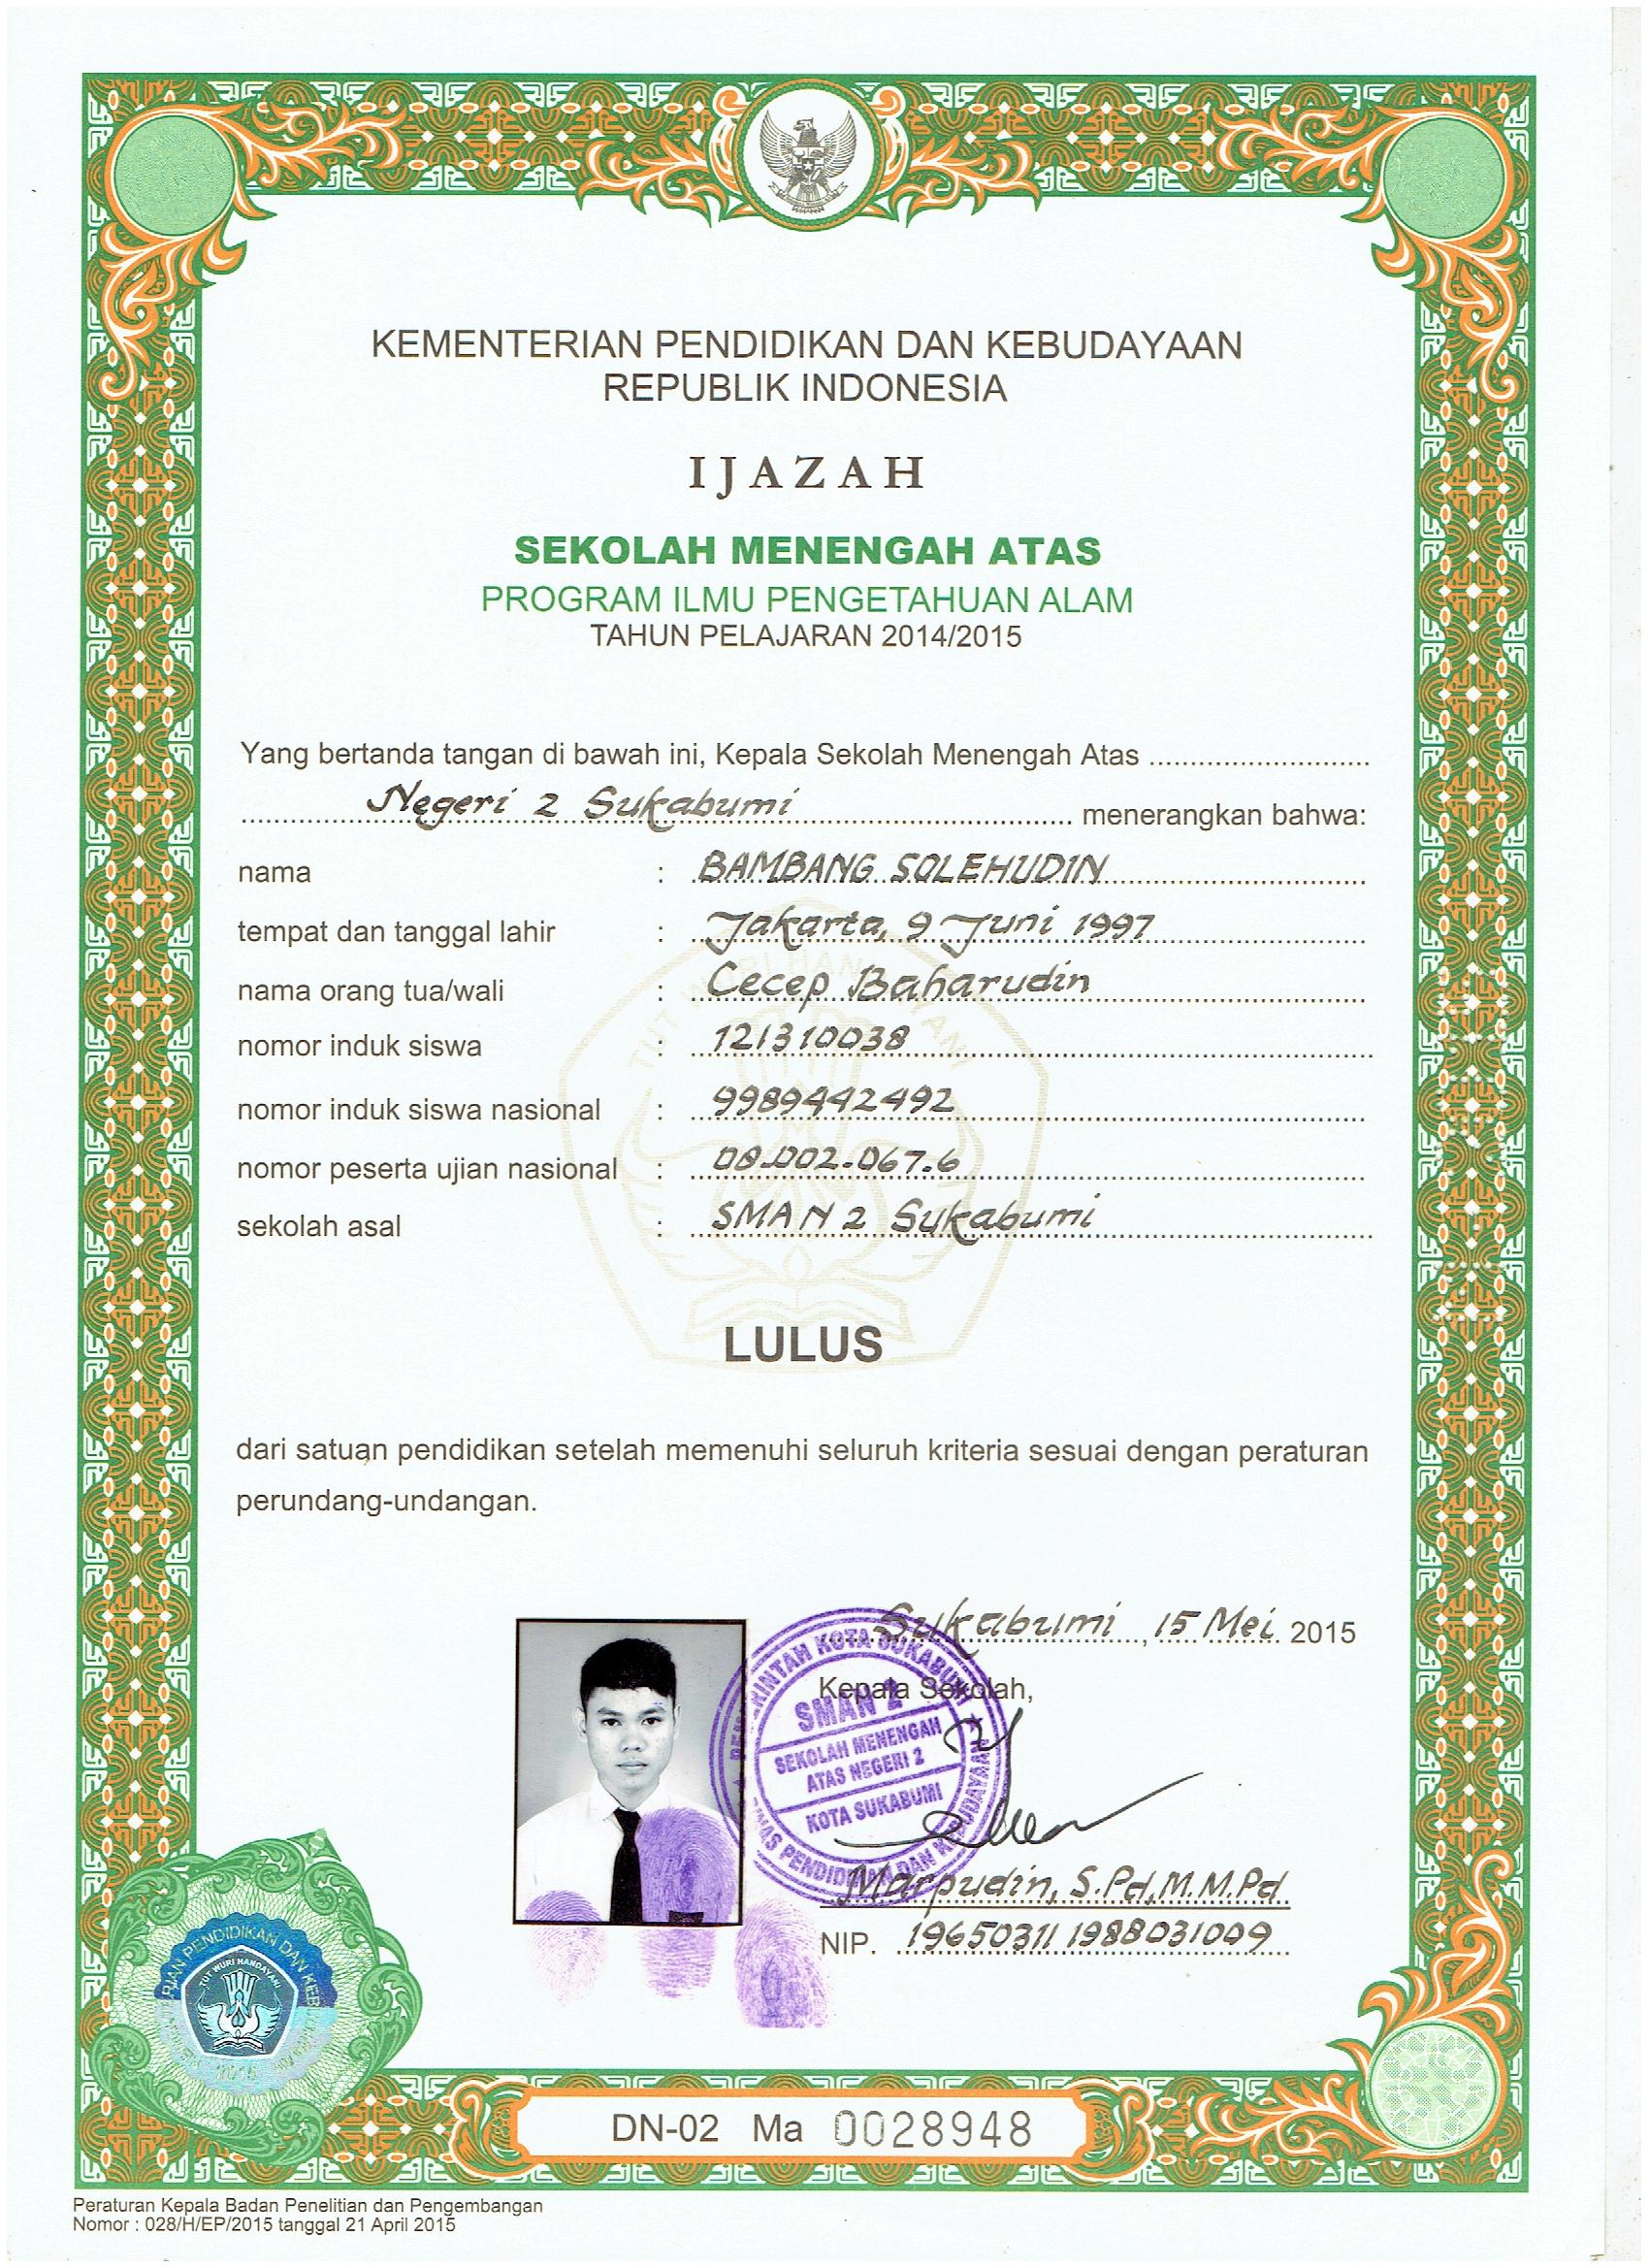 KEMENTERIAN PENDIDIKAN DAN KEBUDAYAAN
REPUBLIK INDONESIA
IJAZAH
SEKOLAH MENENGAH ATAS
PROGRAM ILMU PENGETAHUAN ALAM
TAHUN PELAJARAN 2014/2015
Yang bertanda tangan di bawah ini, Kepala Sekolah Menengah Atas
Negeri 2 Sukabumi menerangkan bahwa:
nama : BAMBANG SOLEHUDIN
tempat dan tanggal lahir : Jakarta, 9 Juni 1997
nama orang tua/wali : Cecep Baharudin
nomor induk siswa : 121310038
nomor induk siswa nasional : 9989442492
nomor peserta ujian nasional : 08-002-067.6
sekolah asal : SMAN 2 Sukabumi
TUT WURI HANDAYANI
LULUS
dari satuan pendidikan setelah memenuhi seluruh kriteria sesuai dengan peraturan
perundang-undangan.
Sukabumi, 15 Mei 2015
Kepala Sekolah,
PEMERINTAH KOTA SUKABUMI
SMAN 2
SEKOLAH MENENGAH
ATAS NEGERI 2
KOTA SUKABUMI
DINAS PENDIDIKAN DAN KEBUDAYAAN
Marpudin, S.Pd,M.M.Pd
NIP. 19650311 1988031009
TUT WURI HANDAYANI
DN-02 Ma 0028948
Peraturan Kepala Badan Penelitian dan Pengembangan
Nomor : 028/H/EP/2015 tanggal 21 April 2015